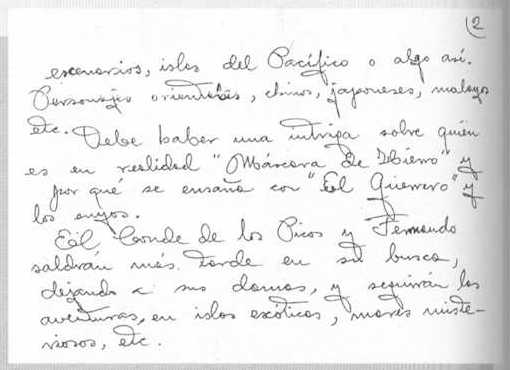 2
escenarios, islas del Pacífico o algo así.
Personajes orientales, chinos, japoneses, malayos
etc. Debe haber una intriga sobre quién
es en realidad "Máscara de Hierro" y
por qué se ensaña con "El Guerrero" y
los suyos.
El Conde de los Picos y Fernando
saldrán más tarde en su busca,
dejando a sus damas, y seguirán las
aventuras, en islas exóticas, mares miste-
riosos, etc.